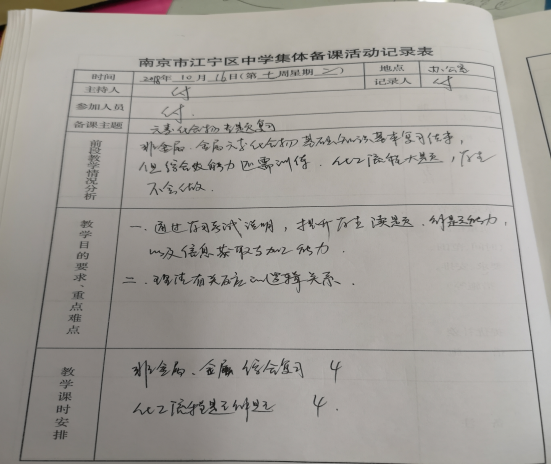 南京市江宁区中学集体备课活动记录表
时间 2018年10月16日(第七周星期二) 地点 办公室
主持人 付 记录人 付
参加人员 付.
备课主题 元素化合物专题复习
前段教学情况分析
非金属、金属元素化合物基础知识基本复习结束,
但综合效能力还需训练.化工流程大题,学生
不会做.
教学目的要求、重点难点
一.通过 考试说明,提升学生读题、解题能力,
以及信息获取与加工能力.
二.理清有关反应的逻辑关系.
教学课时安排
非金属、金属综合复习 4
化工流程题解题 4.